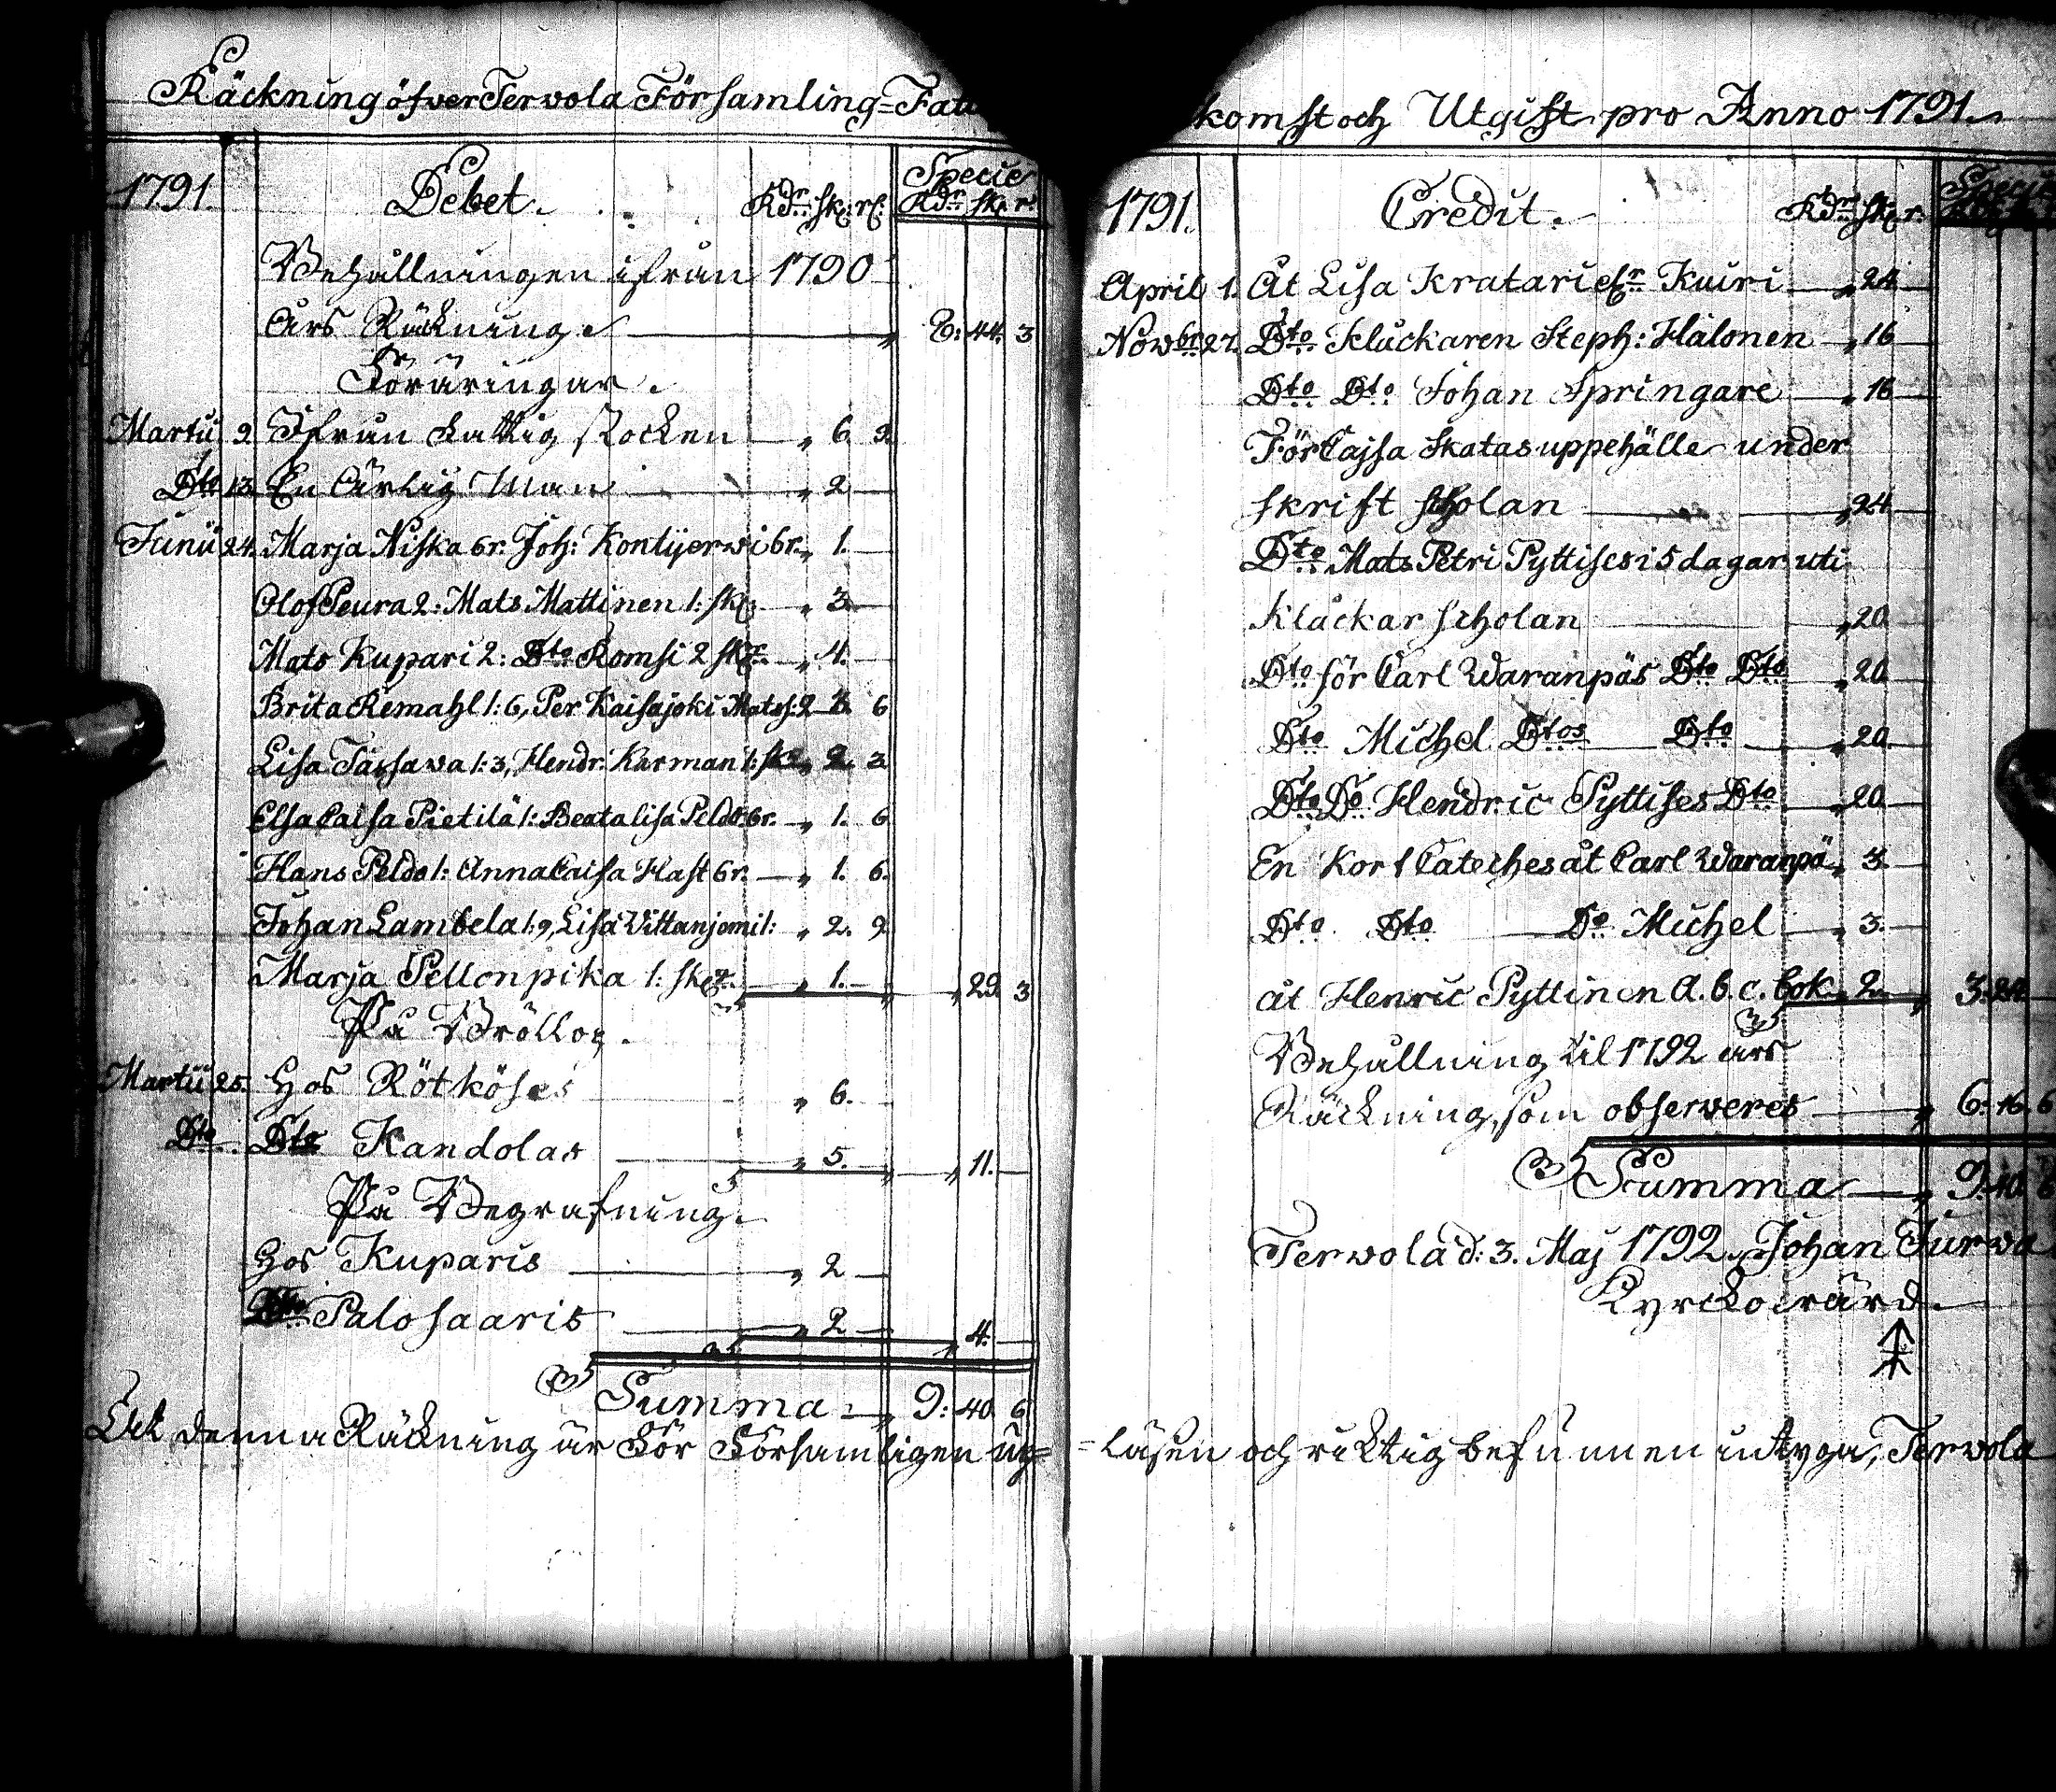 Räckning öfver Tervola Församling=Fatt
1791. Debet. Rdr: sk: r: Specie Rdr sk: r:
Behållningen ifrån 1790
Års Räkning „ 8: 44. 3
Föräringar.
Martii 9. Ifrån Fattig Stocken „ 6. 9.
Dto 13. En Ärlig Man „ 2
Junii 24. Marja Niska 6r. Joh: Kontijerwi 6r. „ 1.
Olof Peura 2: Mats Mattinen 1: sk: „ 3
Mats Kupari 2: Dto Romsi 2 sk: „ 4.
Brita Remahl 1: 6, Per Kaisajoki Matss: 2 6
Lisa Tassava 1: 3, Hendr: Karman 1: sk: „ 2. 3
Elsa Caisa Pietilä 1: Beata Lisa Peldo: 6r. „ 1. 6
Hans Peldo 1: Anna Caisa Hast 6r. „ 1. 6.
Johan Lambela 1: 9, Lisa Vittanjemi 1: „ 2. 9
Marja Pellonpika 1: sk: „ 1. „ 29. 3
På Bröllop.
Martii 25. Hos Rötköses „ 6.
Dto Dto Kandolas „ 5. „ 11.
På Begrafning.
Hos Kuparis „ 2
Dto Palosaaris „ 2 „ 4.
Summa „ 9: 40. 6
Att denna Räckning är för Församligen up=
komst och Utgift pro Anno 1791.
1791. Credit. Rdr: sk: r: Specie
April 1. Åt Lisa Kratari Kuiri „ 24
Nowbr 27. Dto Kluckaren Steph: Hälonen „ 16
Dto Dto Johan Springare „ 16
För Cajsa Skatas uppehälle under
skrift scholan „ 24
Dto Mats Petri Pyttises i 5 dagar uti
Klackar scholan „ 20
Dto för Carl Waranpäs Dto Dto „ 20
Dto Michel Dtos Dto „ 20
Dto Do Hendric Pyttises Dto „ 20
En Kort Cateches åt Carl Waranpä „ 3.
Dto Dto Do Michel „ 3.
åt Henric Pyttinen A. b. c. bok „ 2. „ 3: 24
Behållning til 1792 års
Räckning, som observeres „ 6: 16. 6
Summa „ 9: 40. 6
Terwola d: 3. Maj 1792. Johan Turwa
Kyrckovärd.
=läsen och riktig befunnen intyga, Terwola